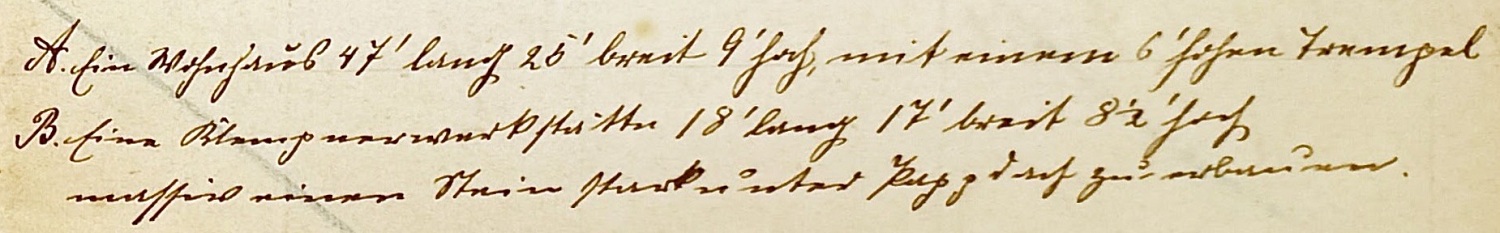 A. Ein Wohnhaus 47' lang 25' breit 9' hoch, mit einem 6' hohen Trempel
B. Eine Klempnerwerkstätte 18' lang 17' breit 8½' hoch
massiv einen Stein stark unter Pappdach zu erbauen.